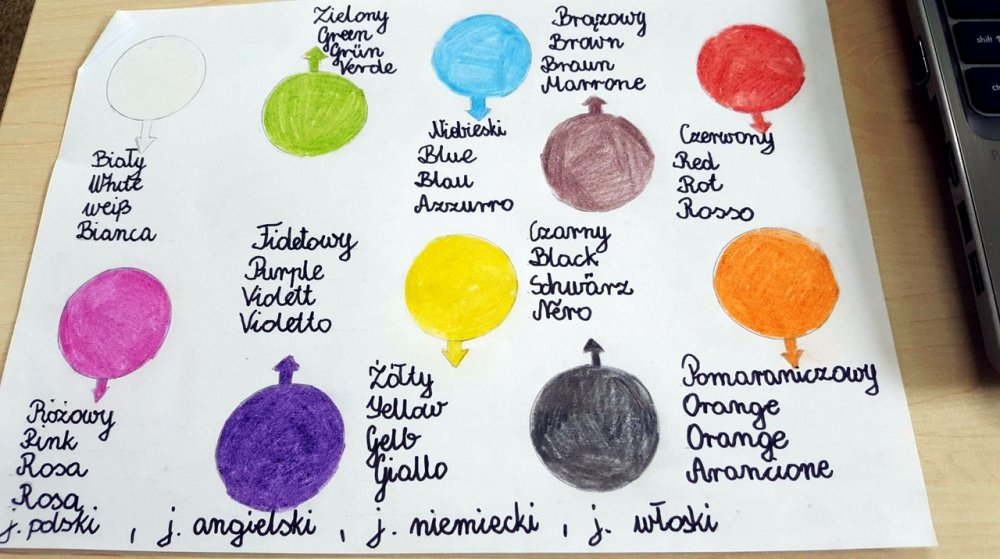 Zielony
Green
Grün
Verde
Brązowy
Brown
Braun
Marrone
Biały
White
weiß
Bianca
Niebieski
Blue
Blau
Azzurro
Czerwony
Red
Rot
Rosso
Fioletowy
Purple
Violett
Violetto
Czarny
Black
Schwärz
Nero
Różowy
Pink
Rosa
Rosa
Żółty
Yellow
Gelb
Giallo
Pomarańczowy
Orange
Orange
Arancione
j. polski , j. angielski , j. niemiecki , j. włoski
shift